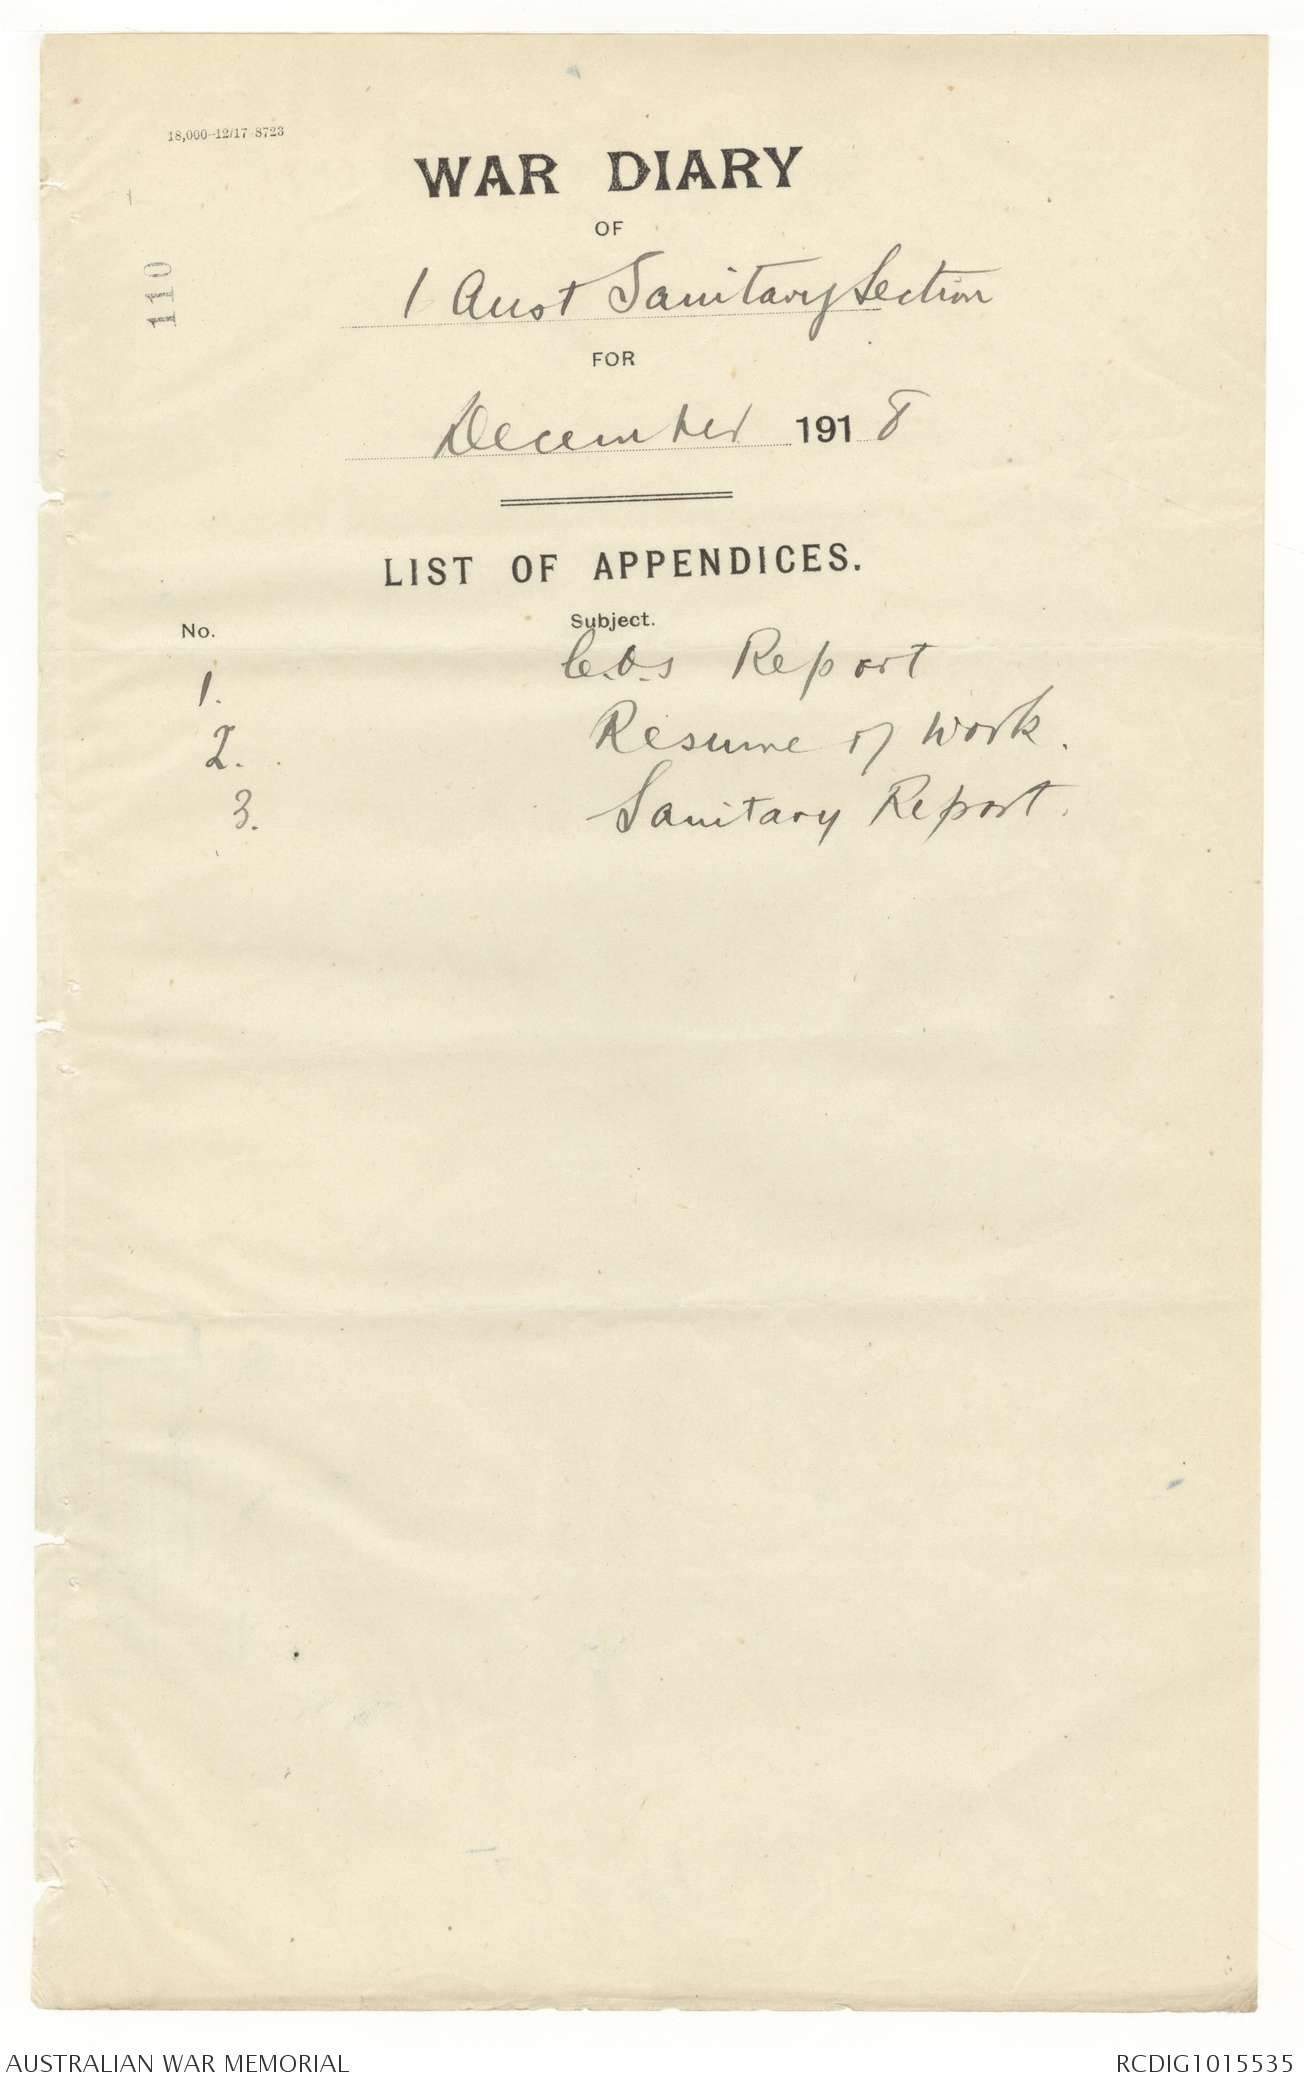 18,000—12/17—8723
WAR DIARY
OF
110
1 Aust Sanitary Section
FOR
December 1918
LIST OF APPENDICES.
No. Subject.
1. C.O.s Report
2. Resume of Work.
3. Sanitary Report.
AUSTRALIAN WAR MEMORIAL RCDIG1015535